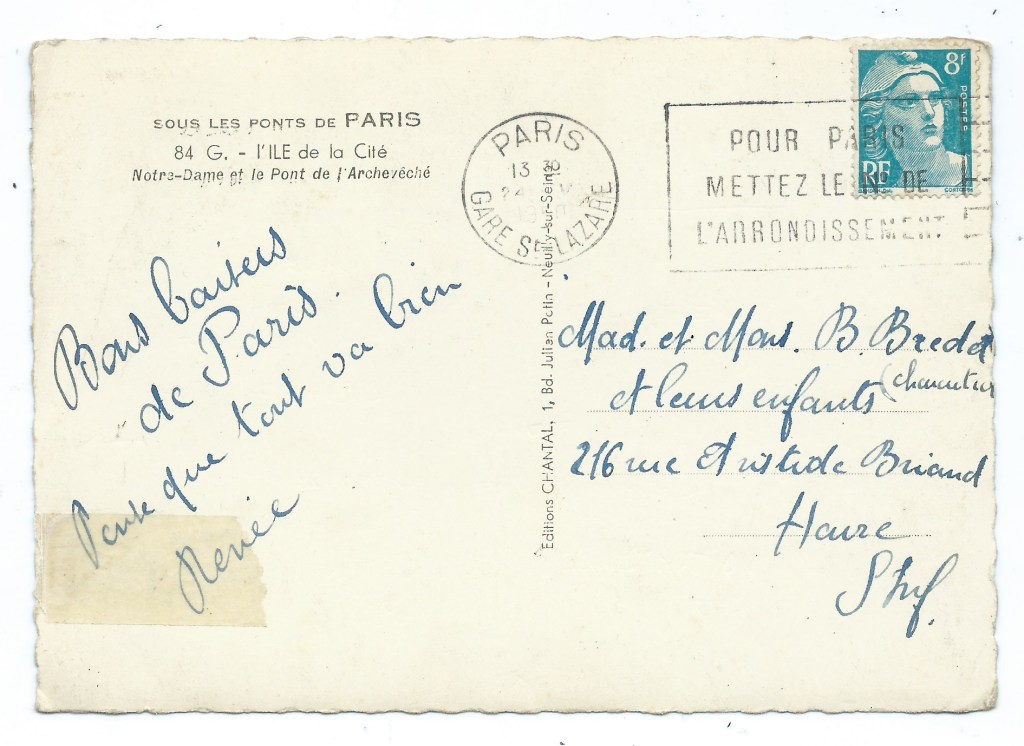 SOUS LES PONTS DE PARIS
84 G. - l'ILE de la Cité
Notre-Dame et le Pont de l'Archevêché
Bons baisers
de Paris.
Pense que tout va bien
Renée
Editions CHANTAL, 1, Bd. Julien Potin - Neuilly-sur-Seine
PARIS
13 30
24
GARE ST LAZARE
POUR PARIS
METTEZ LE No DE
L'ARRONDISSEMENT
8f
POSTES
RF
Mad. et Mons. B. Bredet
et leurs enfants
216 rue Aristide Briand
Havre